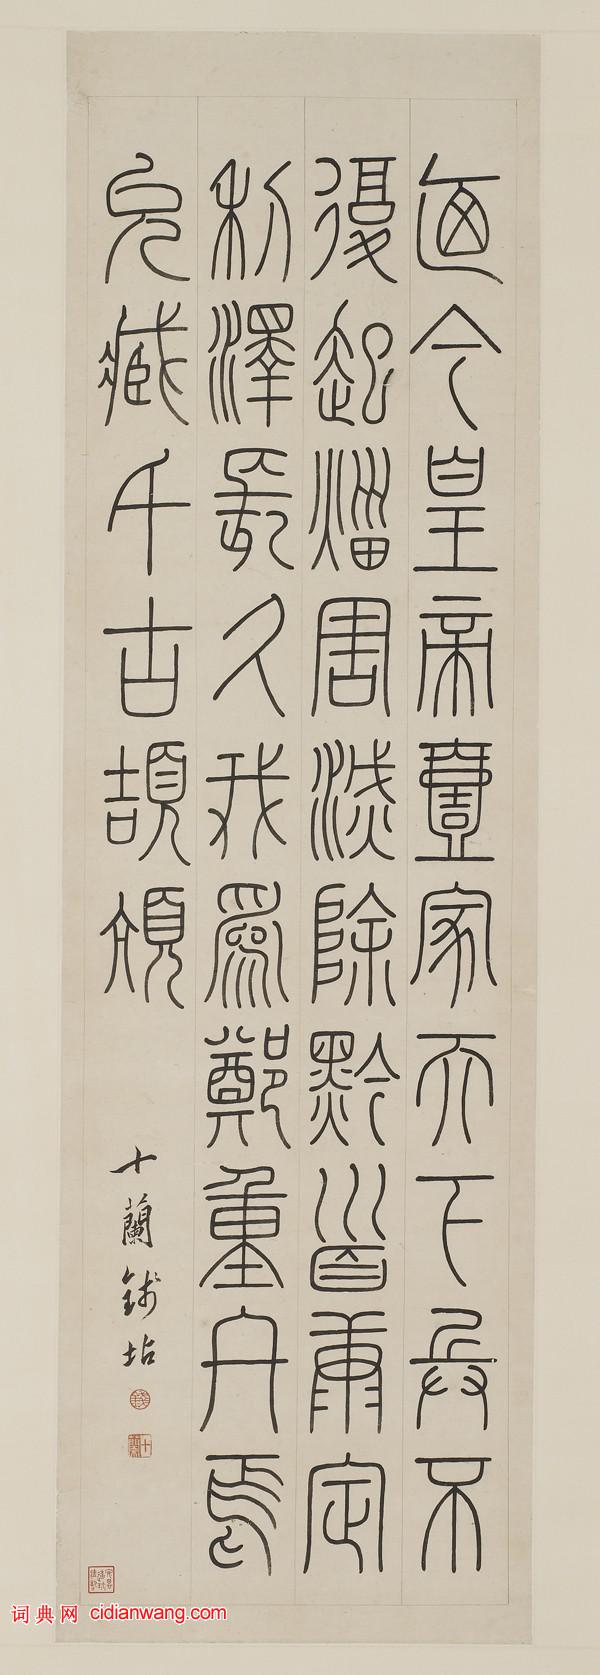 廼今皇帝壹家天下兵不
復起災害滅除黔首康定
利澤長久我爲鄭重
臧千古頡頏
十蘭錢坫
词典网 cidianwang.com